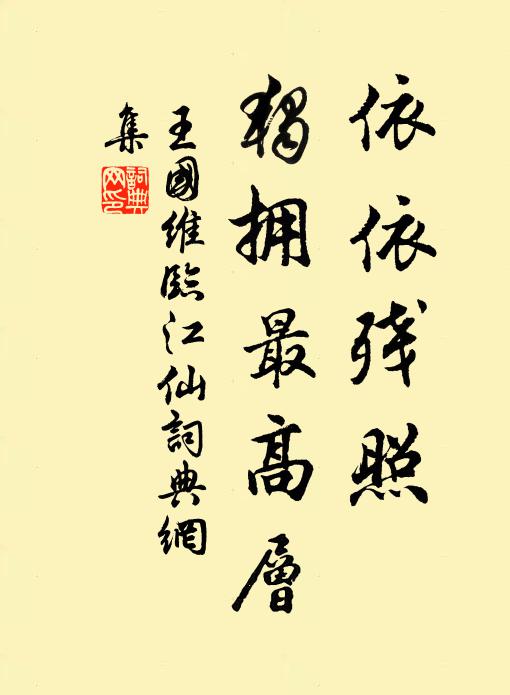 依依残照
獨拥最高層
王國維臨江仙詞典網
集
詞典网印